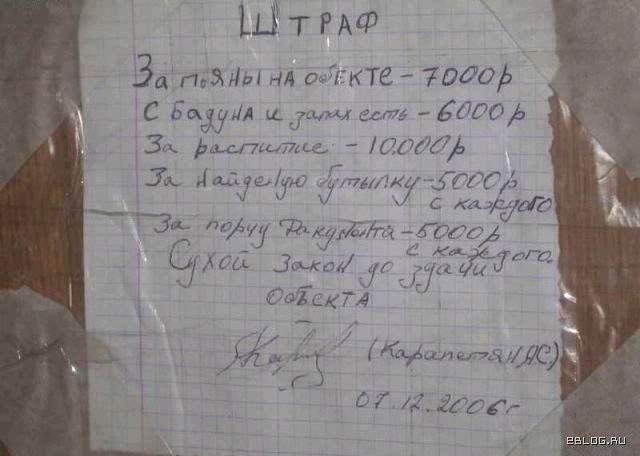 ШТРАФ
За пояны на обекте - 7000р
с бадуна и запах есть - 6000р
За распитие - 10.000р
За найденую бутылку - 5000р
с каждого
За порчу Дакумента - 5000р
с каждого.
Сухой закон до здачи
объекта
(Карапетян АС)
07.12.2006г
EBLOG.RU